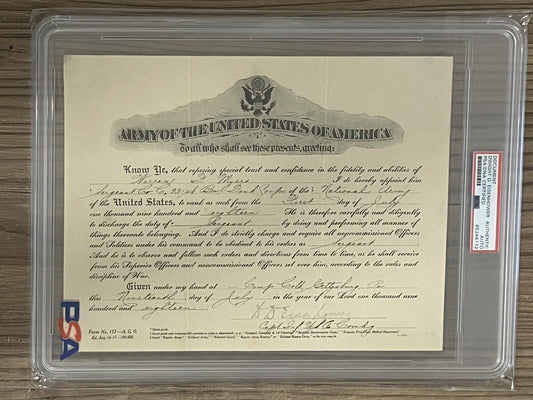 ARMY OF THE UNITED STATES OF AMERICA
To all who shall see these presents, greeting:
Know Ye, that reposing special trust and confidence in the fidelity and abilities of
Warren Myers, I do hereby appoint him
Sergeant Co C, Bn. Tank Corps of the National Army
of the United States, to rank as such from the First day of July
one thousand nine hundred and eighteen He is therefore carefully and diligently
to discharge the duty of Sergeant by doing and performing all manner of
things thereunto belonging. And I do strictly charge and require all noncommissioned Officers
and Soldiers under his command to be obedient to his orders as Sergeant
And he is to observe and follow such orders and directions from time to time, as he shall receive
from his Superior Officers and noncommissioned Officers set over him, according to the rules and
discipline of War.
Given under my hand at Camp Colt, Gettysburg Pa
this Nineteenth day of July in the year of our Lord one thousand nine
hundred and eighteen
D D Eisenhower
Capt Inf US Comdg
Form No. 132—A. G. O.
Ed. Aug 16-17—100,000.
PSA
DOCUMENT
DWIGHT D. EISENHOWER
PSA/DNA CERTIFIED
AUTHENTIC
AUTO